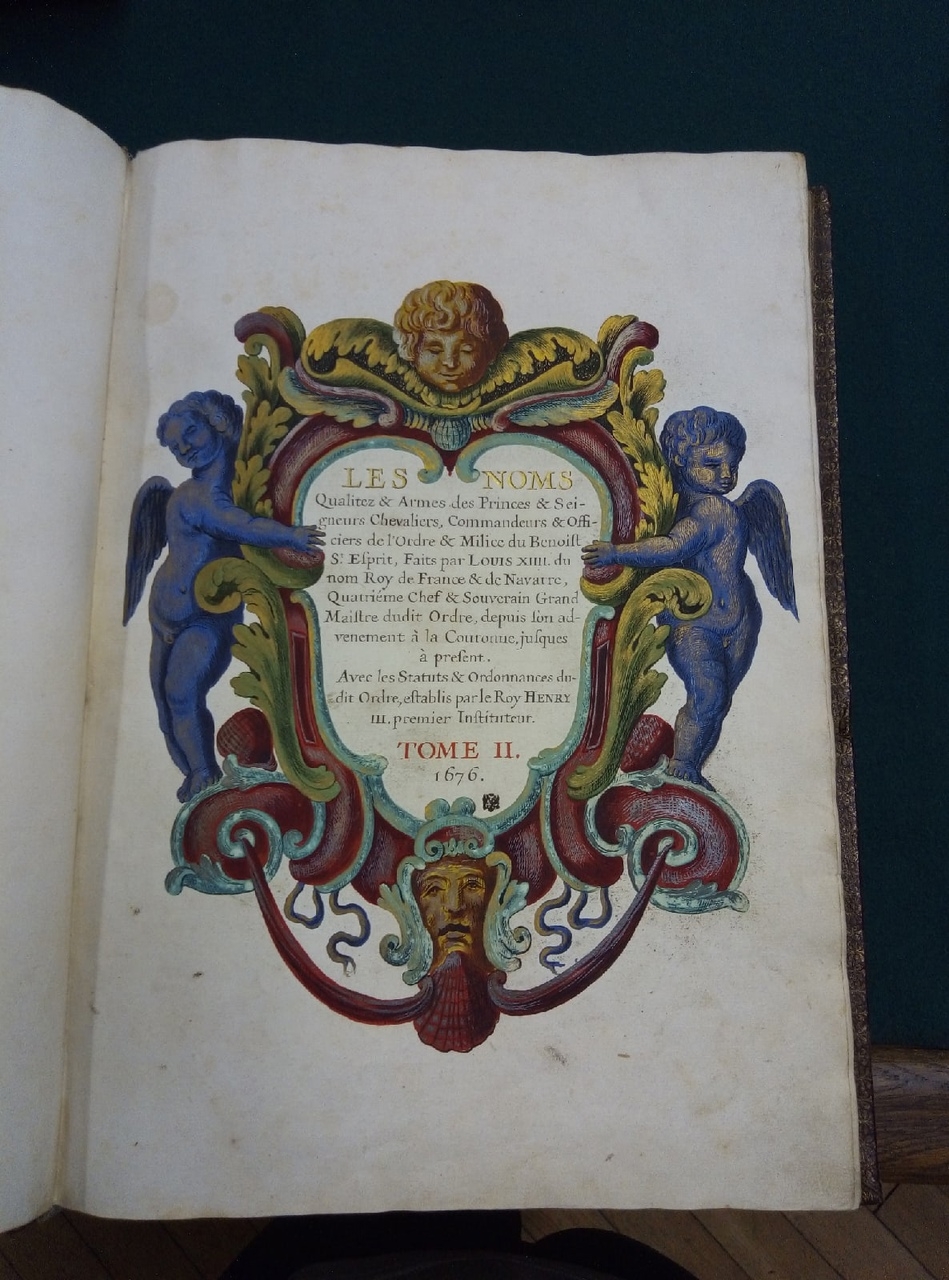 LES NOMS
Qualitez & Armes des Princes & Sei-
gneurs Chevaliers, Commandeurs & Offi-
ciers de l'Ordre & Milice du Benoiſt
St Eſprit, Faits par LOUIS XIIII. du
nom Roy de France & de Navarre,
Quatriéme Chef & Souverain Grand
Maiſtre dudit Ordre, depuis ſon ad-
venement à la Couronne, juſques
à preſent.
Avec les Statuts & Ordonnances du-
dit Ordre, eſtablis par le Roy HENRY
III. premier Inſtituteur.
TOME II.
1676.